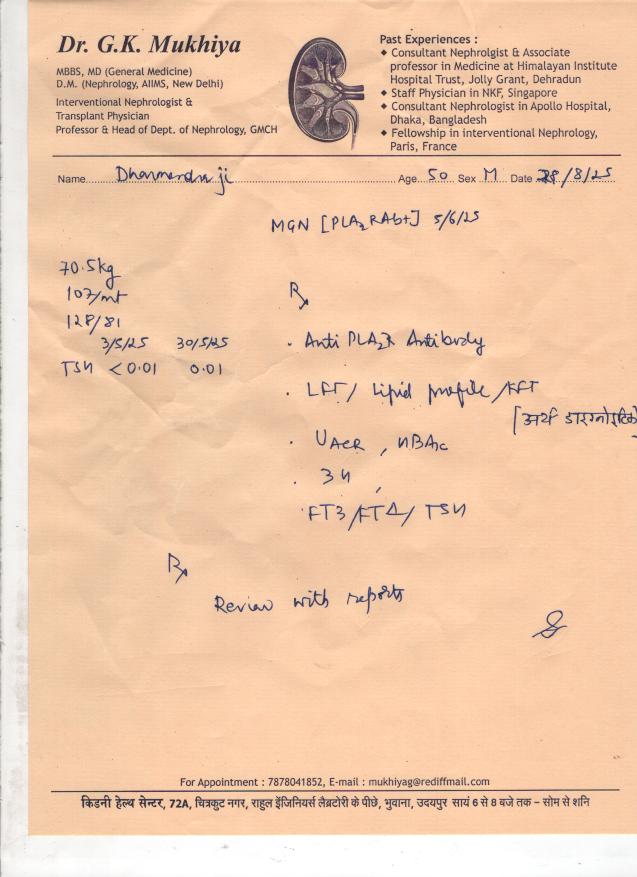 Dr. G.K. Mukhiya
MBBS, MD (General Medicine)
D.M. (Nephrology, AIIMS, New Delhi)
Interventional Nephrologist &
Transplant Physician
Professor & Head of Dept. of Nephrology, GMCH
Past Experiences :
◆ Consultant Nephrolgist & Associate
professor in Medicine at Himalayan Institute
Hospital Trust, Jolly Grant, Dehradun
◆ Staff Physician in NKF, Singapore
◆ Consultant Nephrologist in Apollo Hospital,
Dhaka, Bangladesh
◆ Fellowship in interventional Nephrology,
Paris, France
Name Dharmendra ji Age 50 Sex M Date 28/8/25
MGN [PLA2RAb+] 5/6/25
70.5kg
107/mt
128/81
3/5/25 30/5/25
TSH <0.01 0.01
Rx
. Anti PLA2R Antibody
. LFT/ Lipid profile /KFT
[अर्थ डायग्नोस्टिक
. UACR, HBA1c
. 3H,
FT3/FT4/TSH
Rx
Review with reports
For Appointment : 7878041852, E-mail : mukhiyag@rediffmail.com
किडनी हेल्थ सेन्टर, 72A, चित्रकुट नगर, राहुल इंजिनियर्स लैब्रटोरी के पीछे, भुवाना, उदयपुर सायं 6 से 8 बजे तक – सोम से शनि